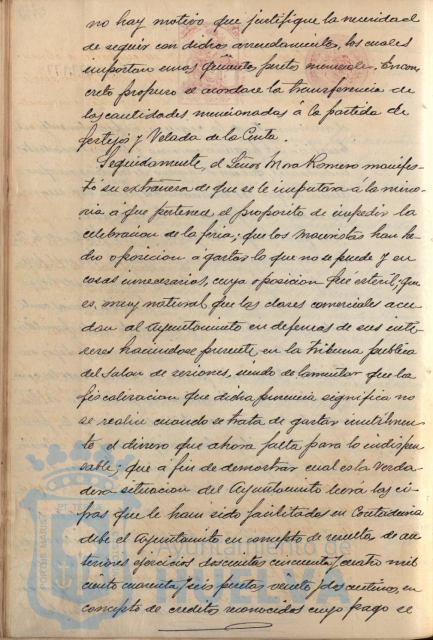 no hay motivo que justifique la necesidad
de seguir con dichos arrendamientos, los cuales
importan unas pesetas mensuales. En con
creto propuso se acordase la transferencia de
las cantidades mencionadas á la partida de
festejos y Velada de la Cinta.
Seguidamente, el Señor Mora Romero manifes-
tó su extrañeza de que se le imputára á la mino-
ria á que pertenece el propósito de impedir la
celebracion de la feria; que los mauristas han he-
cho oposicion á gastar lo que no se puede y en
cosas innecesarias, cuya oposicion fué estéril; que
es muy natural que las clases comerciales acu-
dan al Ayuntamiento en defensa de sus inte-
reses haciendose presente en la tribuna publica
del Salon de sesiones, siendo de lamentar que la
fiscalizacion que dicha presencia significa no
se realice cuando se trata de gastar inutilmen-
te el dinero que ahora falta para lo indispen
sable; que á fin de demostrar cual es la verda-
dera situacion del Ayuntamiento leerá las ci-
fras que le han sido facilitadas en Contaduria
debe el Ayuntamiento en concepto de resultas de an-
teriores ejercicios doscientas cincuenta y cuatro mil
ciento cuarenta y seis pesetas veinte y dos centimos, en
concepto de creditos reconocidos cuyo pago se
Ayuntamiento de